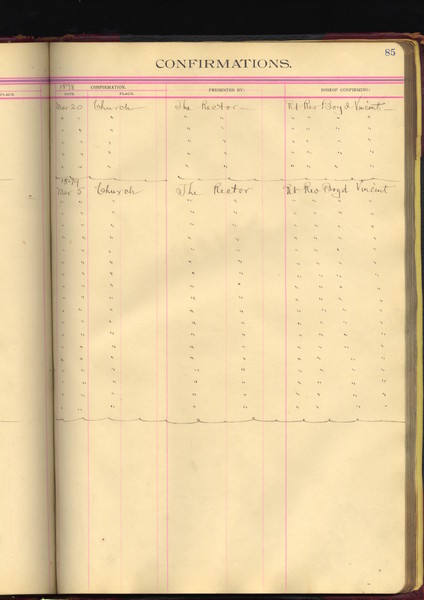 85
CONFIRMATIONS.
PLACE.
1898 CONFIRMATION.
DATE. PLACE. PRESENTED BY: BISHOP CONFIRMING:
Mar 20 Church The Rector Rt Rev Boyd Vincent
" " " " " " " " "
" " " " " " " " "
" " " " " " " " "
" " " " " " " " "
" " " " " " " " "
1899
Mar 5 Church The Rector Rt Rev Boyd Vincent
" " " " " " " " "
" " " " " " " " "
" " " " " " " " "
" " " " " " " " "
" " " " " " " " "
" " " " " " " " "
" " " " " " " " "
" " " " " " " " "
" " " " " " " " "
" " " " " " " " "
" " " " " " " " "
" " " " " " " " "
" " " " " " " " "
" " " " " " " " "
" " " " " " " " "
" " " " " " " " "
" " " " " " " " "
" " " " " " " " "